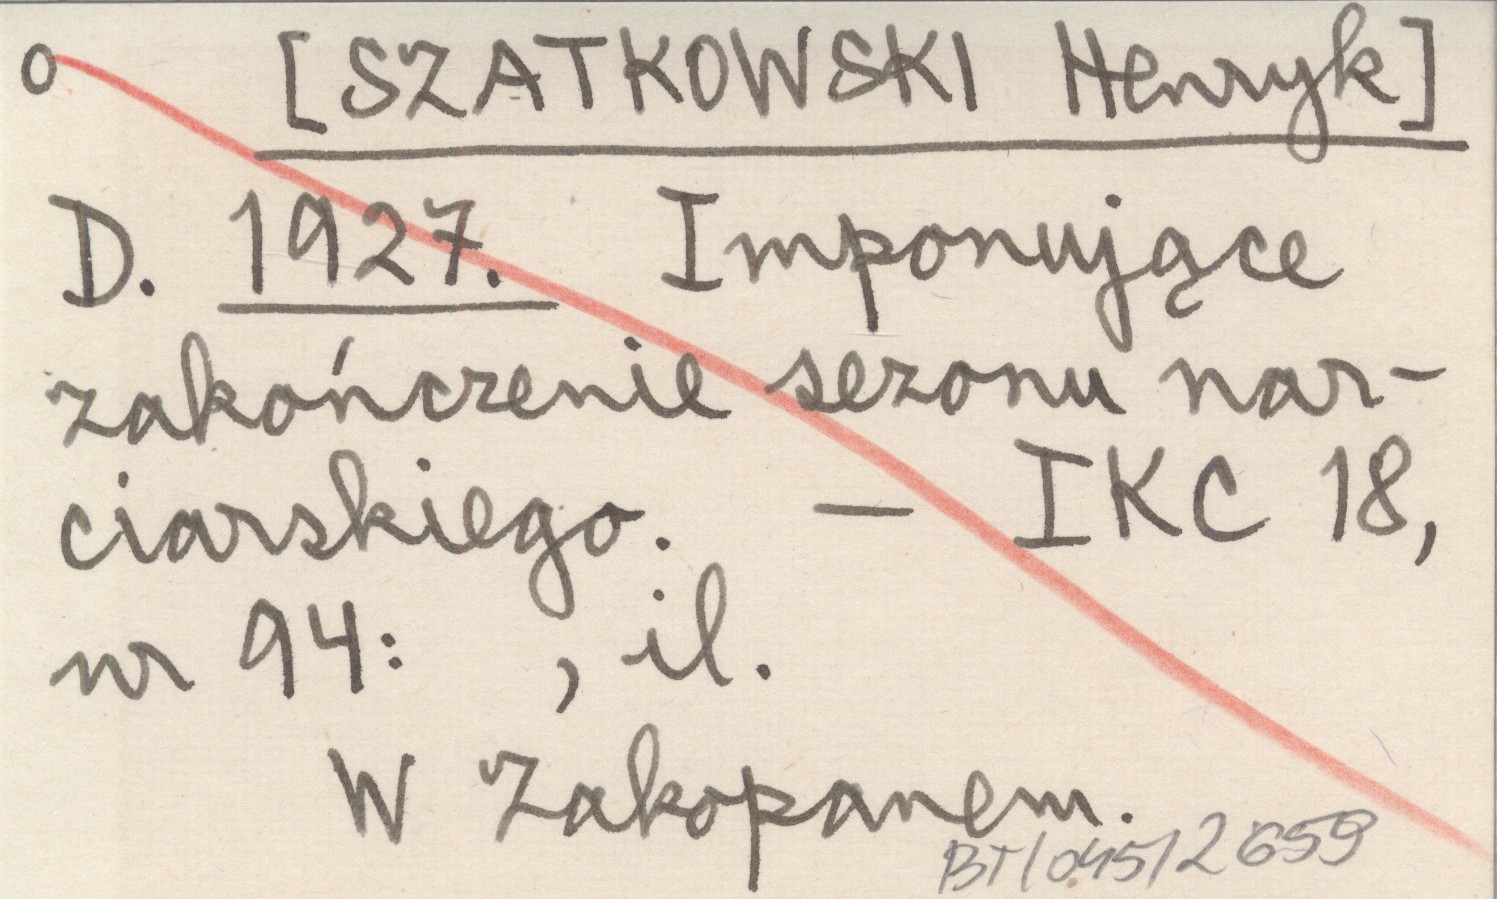 o [SZATKOWSKI Henryk]
D. 1927. Imponujące
zakończenie sezonu nar-
ciarskiego. — IKC 18,
nr 94: , il.
W Zakopanem.
BT/045/2659